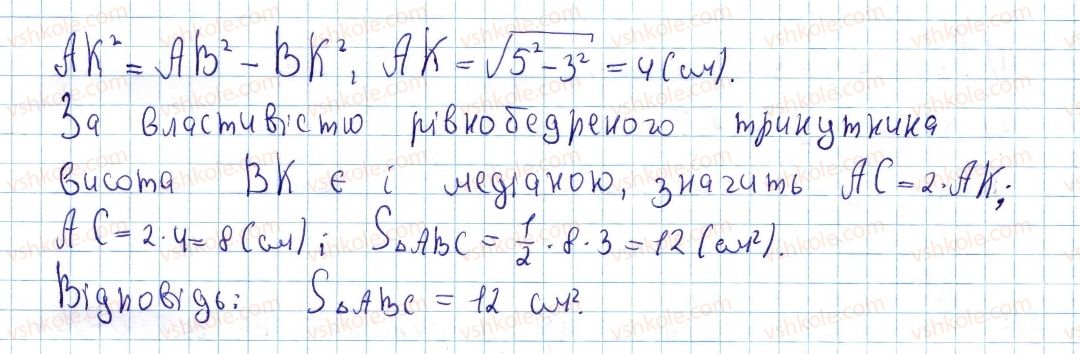 AK² = AB² − BK², AK = √(5² − 3²) = 4 (см).
За властивістю рівнобедреного трикутника
висота BK є і медіаною, значить AC = 2·AK;
AC = 2·4 = 8 (см); S△ABC = 1/2 · 8 · 3 = 12 (см²).
Відповідь: S△ABC = 12 см².